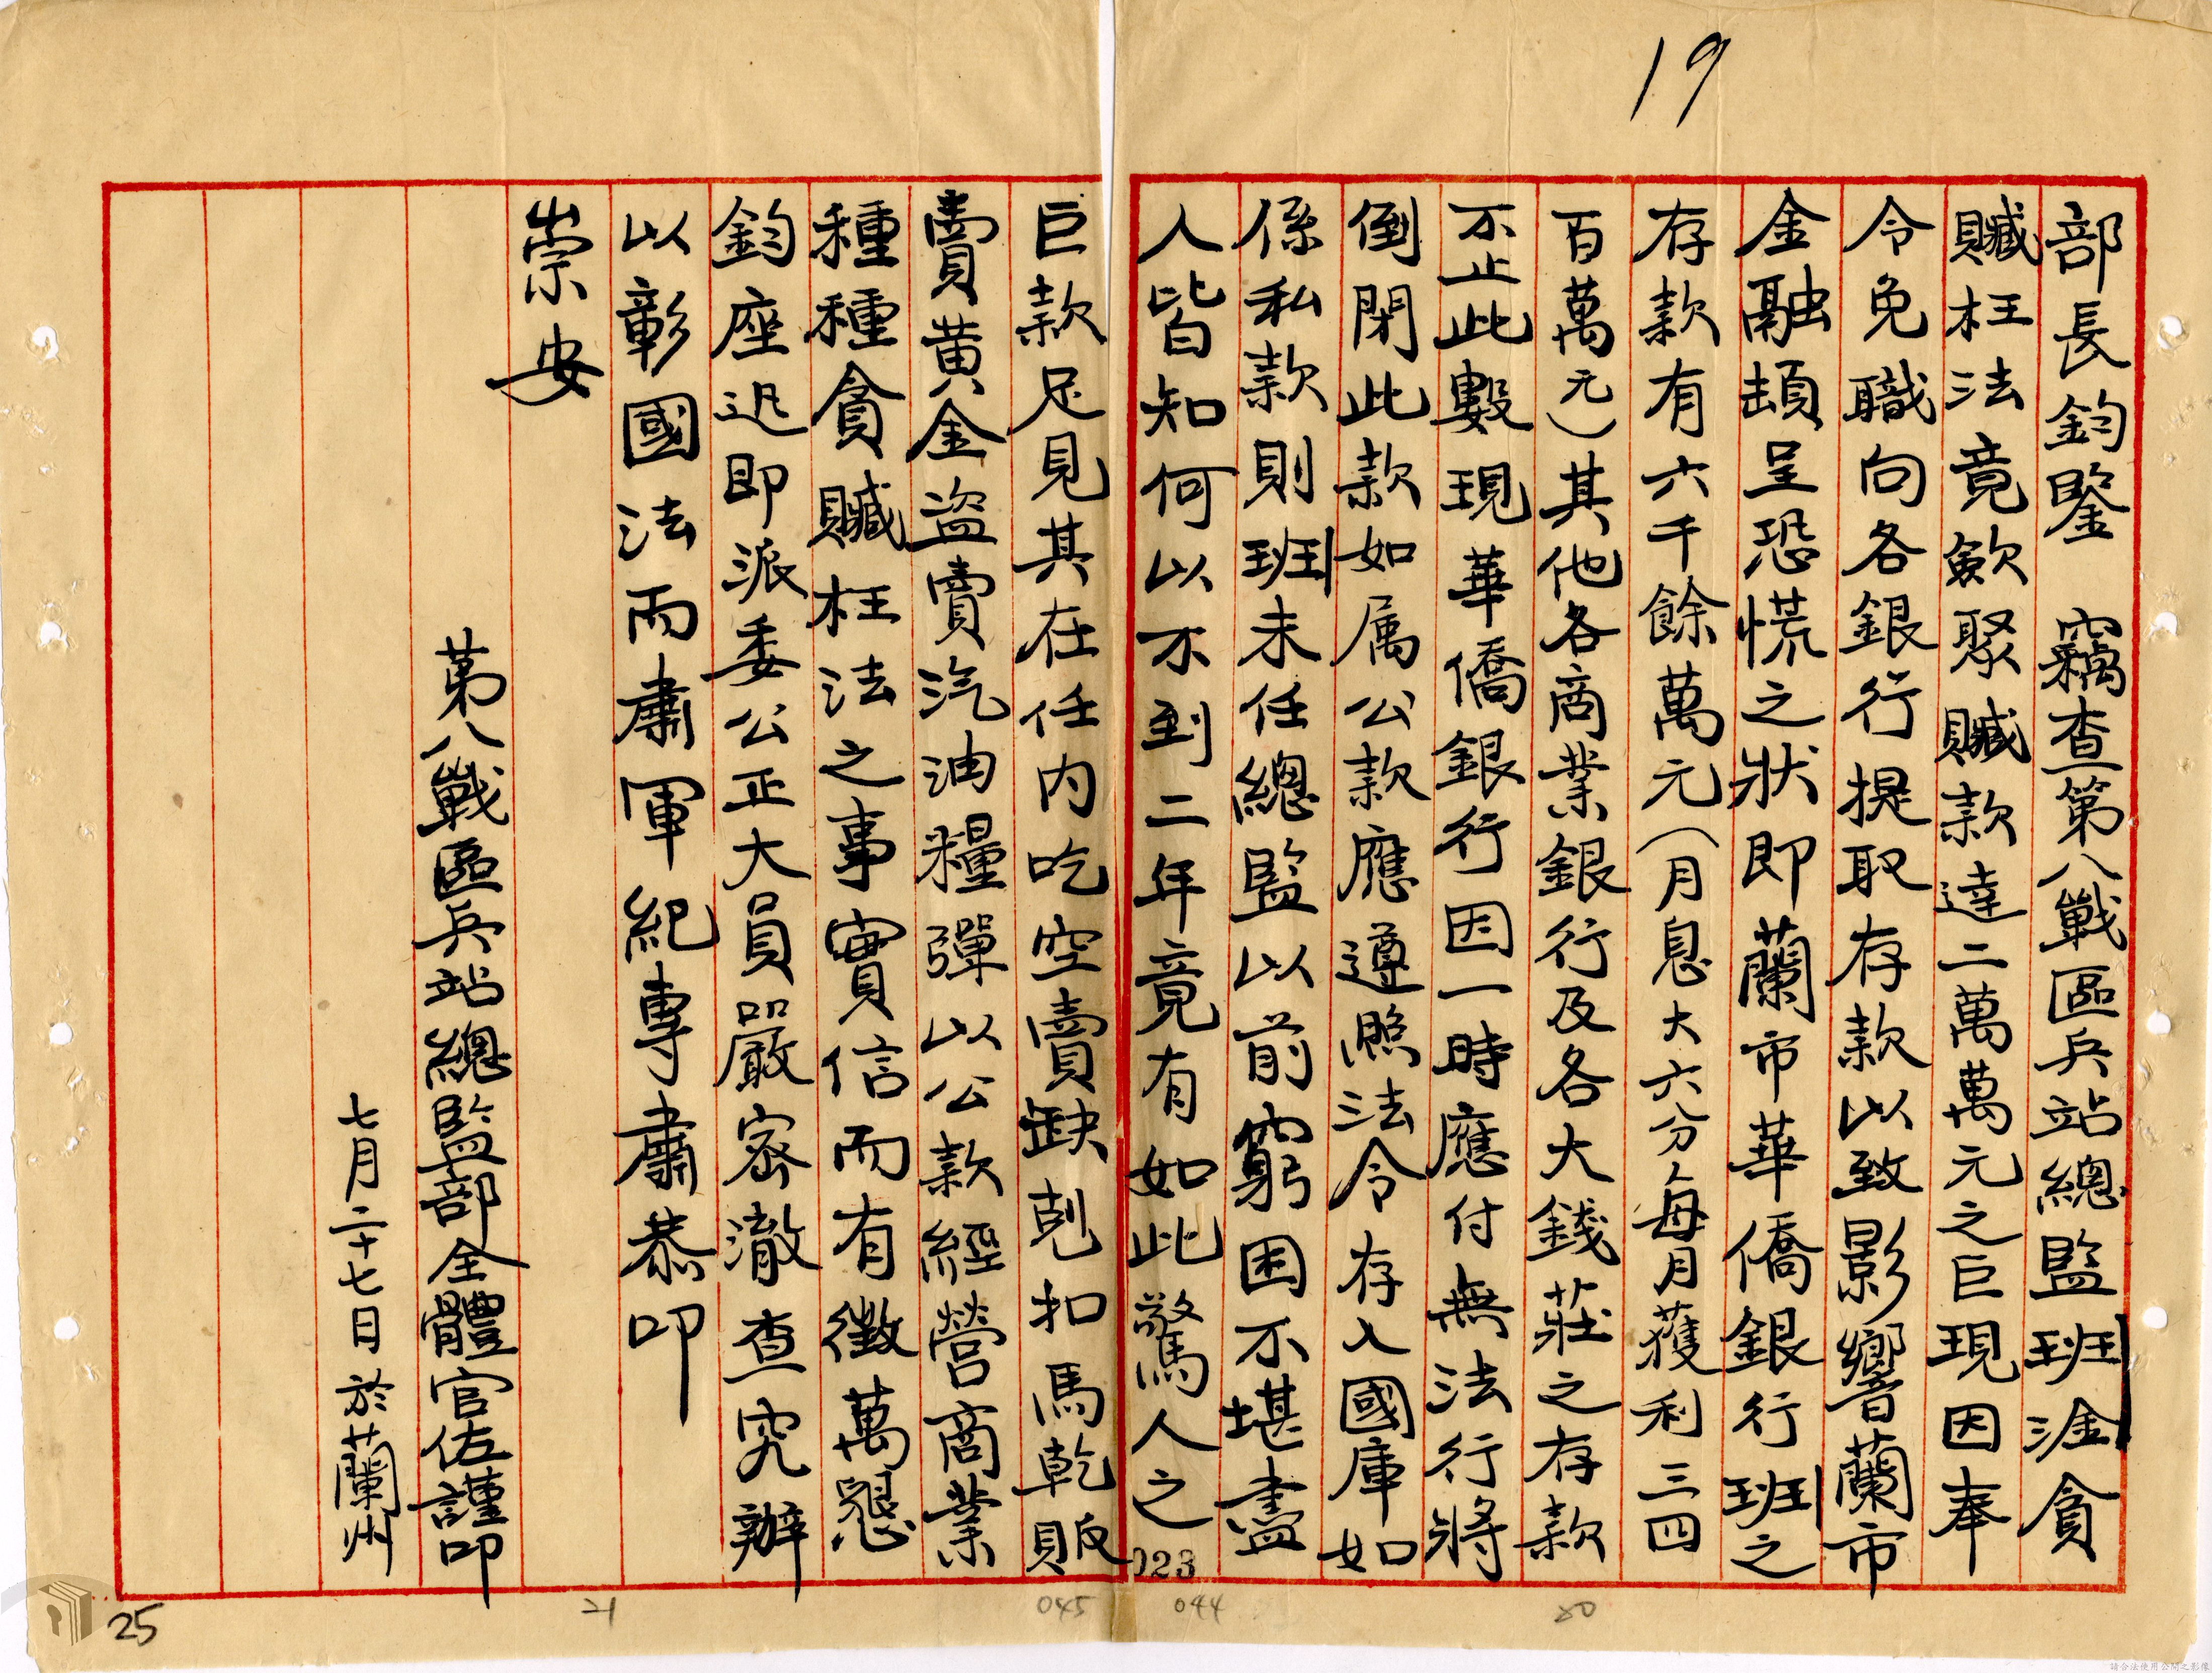 19
部長鈞鑒　竊查第八戰區兵站總監班淦貪
贓枉法竟歛聚贓款達二萬萬元之巨現因奉
令免職向各銀行提取存款以致影響蘭市
金融頓呈恐慌之狀即蘭市華僑銀行班之
存款有六千餘萬元（月息大六分每月獲利三四
百萬元）其他各商業銀行及各大錢莊之存款
不止此數現華僑銀行因一時應付無法行將
倒閉此款如属公款應遵照法令存入國庫如
係私款則班未任總監以前窮困不堪盡
人皆知何以不到二年竟有如此驚人之
巨款足見其在任内吃空賣缺剋扣馬乾販
賣黄金盜賣汽油糧彈以公款經營商業
種種貪贓枉法之事實信而有徵萬懇
鈞座迅即派委公正大員嚴密澈查究辦
以彰國法而肅軍紀專肅恭叩
崇安
第八戰區兵站總監部全體官佐謹叩
七月二十七日於蘭州
023
25
21
045
044
20
請合法使用公開之影像